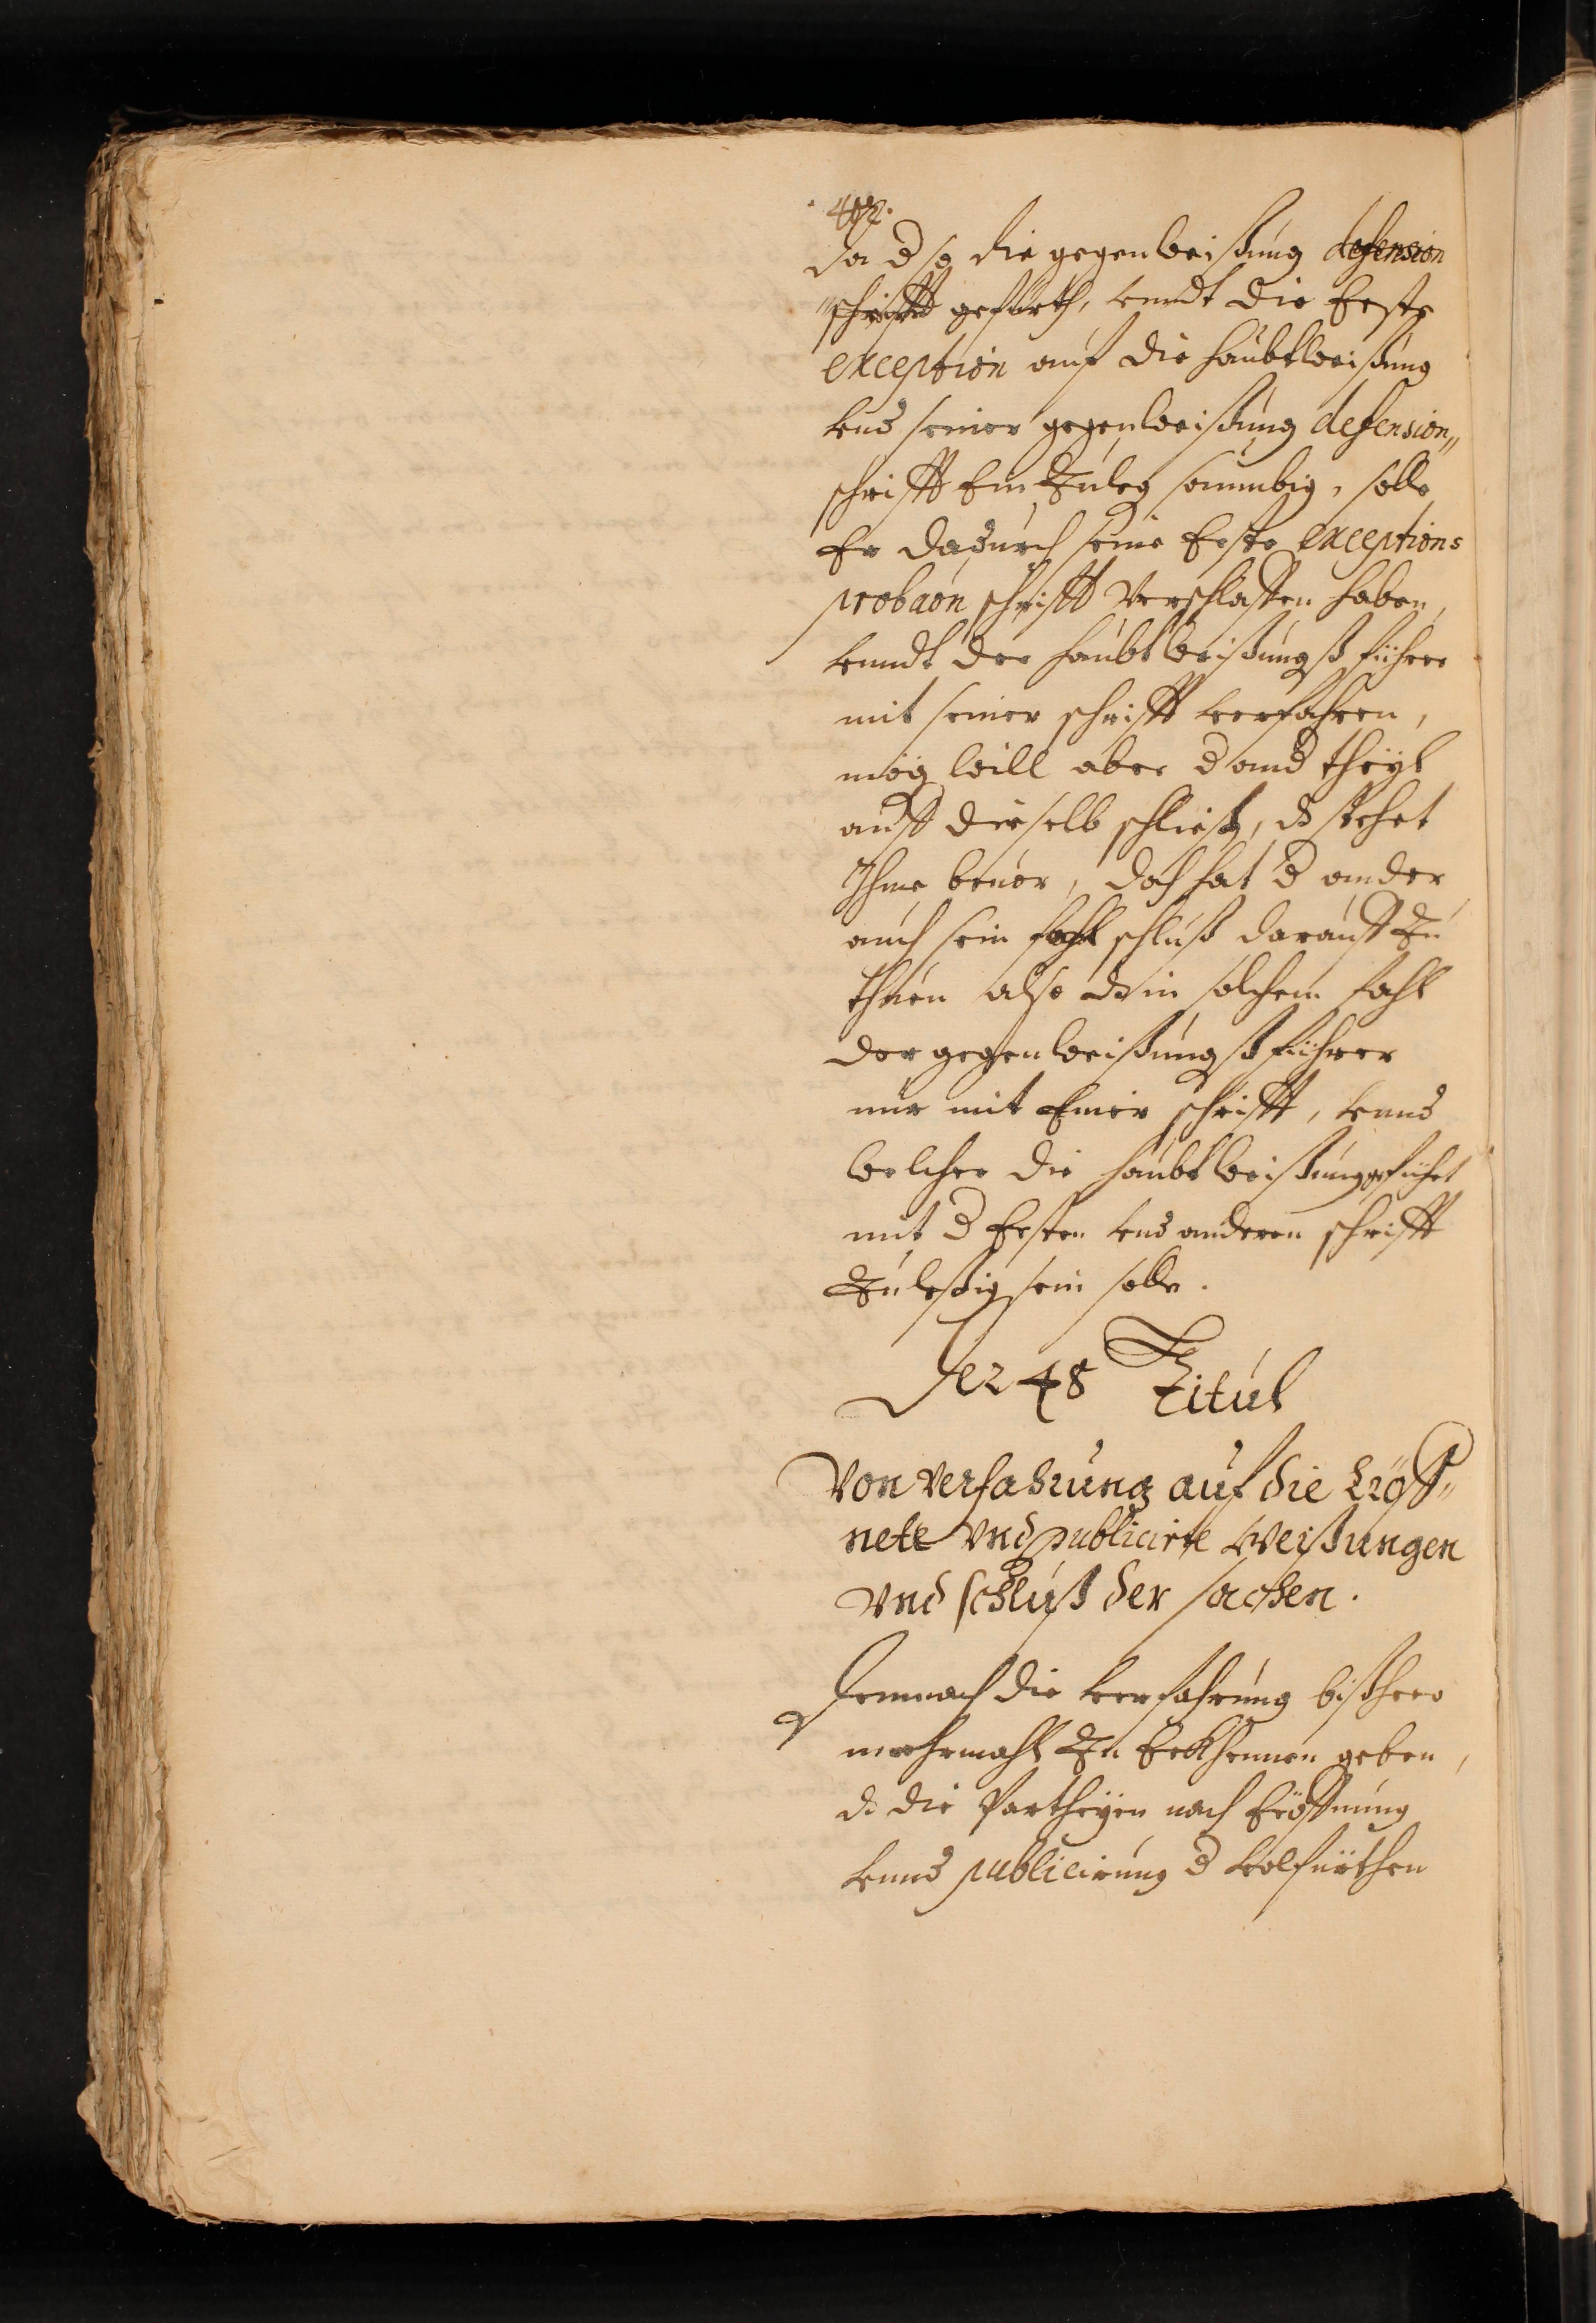 da d so die gegenweisung defension
schrifft gefürth, vnndt die Erste
exception auf die haubtweisung
vnd seiner gegenweisung defension„
schrifft Einzuleg saumbig, solle
Er dadurch seine Erste exceptions
probaon schrifft verschlaffen haben,
vnndt der haubtweisungß führer
mit seiner schrifft verfahren,
mög will aber d and theyl
auff dieselb schließ, ds stehet
Ihme beuor, doch hat d ander
auch sein schluß darauff zu
thuen also ds in solchem fahl
der gegenweisungß führer
nur mit Einer schrifft, vnnd
welcher die haubtweisung geführt
mit d Ersten vnd anderen schrifft
zuleßig sein solle.
Der 48 Titul
Von verfahrung auf die Eröff„
nete vnd publicirte weisungen
vnd schluß der sachen.
Demnach die verfahrung bißhero
mehrmahl zu Erkhennen geben,
ds die Partheyen nach Eröffnung
vnnd publicirung d volfürthen